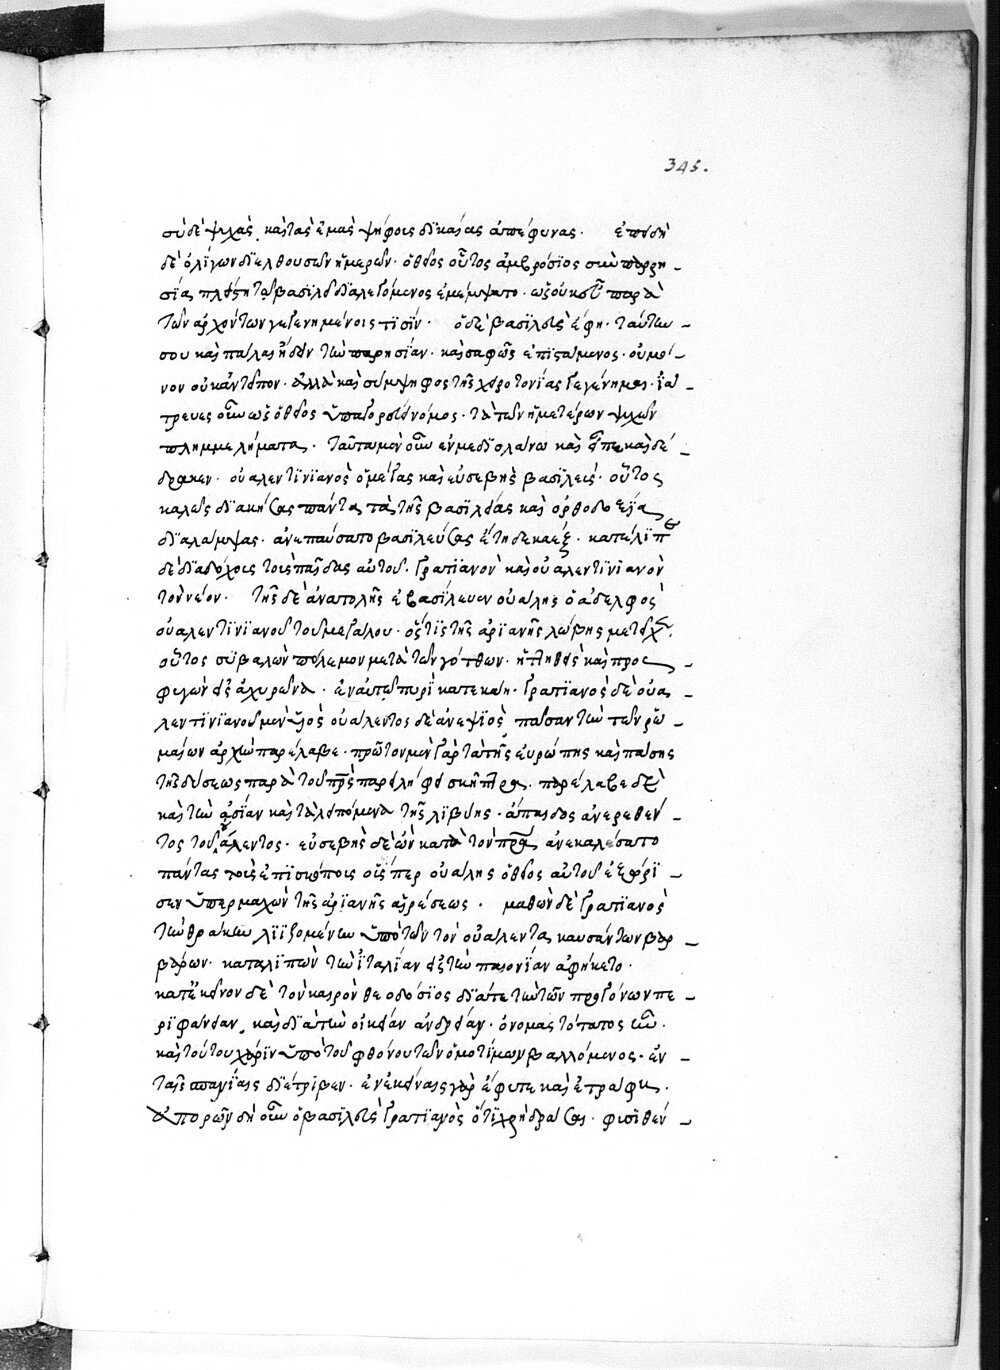 345.
σὺ δὲ ψυχὰς καὶ τὰς ἐμὰς ψήφοις δικαίας ἀπέφηνας. ἐπειδὴ
δὲ ὀλίγων διελθουσῶν ἡμερῶν. ὁ θεῖος οὗτος ἀμβρόσιος σὺν παρρη
σίᾳ πλείστῃ τῷ βασιλεῖ διαλεγόμενος ἐμέμψατο. ὡς οὐκ εὖ παρὰ
τῶν ἀρχόντων γεγενημένοις τισίν. ὁ δὲ βασιλεὺς ἔφη. ταύτην
σου καὶ πάλαι ᾔδειν τὴν παρησίαν. καὶ σαφῶς ἐπιστάμενος. οὐ μό
νον οὐκ ἀντεῖπον. ἀλλὰ καὶ σύμψηφος τῆς χειροτονίας γεγένημαι. ἰά
τρευε οὖν ὡς ὁ θεῖος ὑπαγορεύει νόμος. τὰ τῶν ἡμετέρων ψυχῶν
πλημμελήματα. ταῦτα μὲν οὖν ἐν μεδιολάνω καὶ εἶπε καὶ δέ
δρακεν. οὐαλεντινιανὸς ὁ μέγας καὶ εὐσεβὴς βασιλεύς. οὗτος
καλῶς διοικήσας πάντα τὰ τῆς βασιλείας καὶ ὀρθοδοξία
διαλάμψας. ἀνεπαύσατο βασιλεύσας ἔτη δέκα ἕξ. κατέλιπε
δὲ διαδόχοις τοῖς παῖδας αὐτοῦ. γρατιανὸν καὶ οὐαλεντινιανὸν
τὸν νέον. τῆς δὲ ἀνατολῆς ἐβασίλευεν οὐάλης ὁ ἀδελφὸς
οὐαλεντινιανοῦ τοῦ μεγάλου. ὅστις τῆς ἀριανῆς λώβης μετεῖχε.
οὗτος συβαλὼν πόλεμον μετὰ τῶν γότθων. ἡττηθεὶς καὶ προς
φυγὼν εἰς ἀχυρῶνα. ἐν αὐτῷ πυρὶ κατεκάη. γρατιανὸς δὲ οὐα
λεντινιανοῦ μὲν υἱὸς οὐάλεντος δὲ ἀνεψιὸς πᾶσαν τὴν τῶν ῥω
μαίων ἀρχὴν παρέλαβε. πρῶτον μὲν γὰρ τὰ τῆς εὐρώπης καὶ πάσης
τῆς δύσεως παρὰ τοῦ πρς παρειλήφει σκῆπτρα. παρέλαβε δὲ
καὶ τὴν ἀσίαν καὶ τὰ λειπόμενα τῆς λιβύης. ἄπαιδος ἀνερεθέν
τος τοῦ οὐάλεντος. εὐσεβὴς δὲ ὢν κατὰ τὸν πρα ἀνεκαλέσατο
πάντας τοὺς ἐπισκόποις οἷς περ οὐάλης ὁ θεῖος αὐτοῦ ἐξώρι
σεν ὑπερμαχῶν τῆς ἀριανῆς αἱρέσεως. μαθὼν δὲ γρατιανὸς
τὴν θράκην λιϊζομένην ὑπὸ τῶν τὸν οὐάλεντα καυσάντων βαρ
βάρων. καταλιπὼν τὴν ἰταλίαν εἰς τὴν παιονίαν ἀφήκετο.
κατ' ἐκεῖνον δὲ τὸν καιρὸν θεοδόσιος διά τε τὴν τῶν προγόνων πε
ριφάνειαν, καὶ διὰ τὴν οἰκείαν ἀνδρείαν. ὀνομαστότατος ἦν.
καὶ τούτου χάριν ὑπὸ τοῦ φθόνου τῶν ὁμοτίμων βαλλόμενος. ἐν
ταῖς ἱσπανίαις διέτριβεν. ἐν ἐκείναις γὰρ ἔφυτε καὶ ἐτράφη.
ἀπορῶν δὴ οὖν ὁ βασιλεὺς γρατιανὸς ὅτι χρὴ δρᾶσαι. φυσιθέν